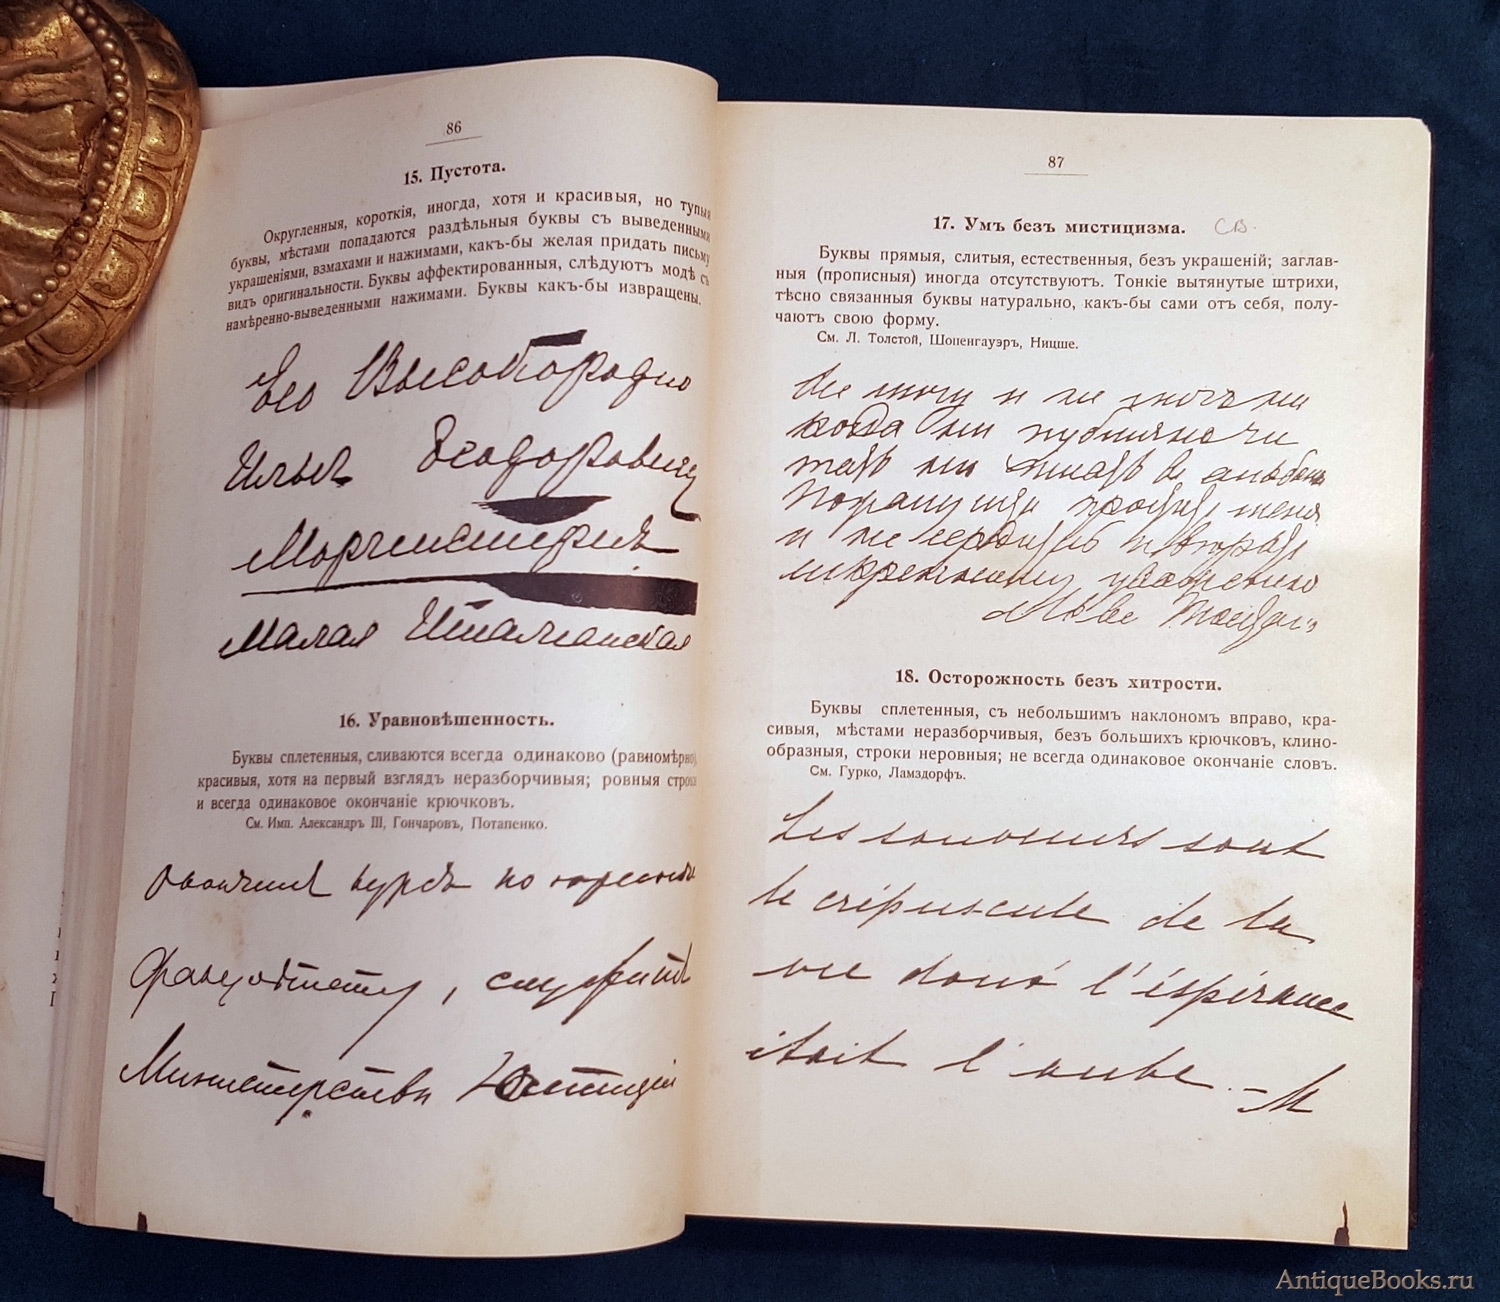 86
15. Пустота.
Округленныя, короткія, иногда, хотя и красивыя, но тупыя
буквы, мѣстами попадаются раздѣльныя буквы съ выведенными
украшеніями, взмахами и нажимами, какъ-бы желая придать письму
видъ оригинальности. Буквы аффектированныя, слѣдуютъ модѣ съ
намѣренно-выведенными нажимами. Буквы какъ-бы извращены.
Его Высокородію
Ильѣ Ѳеодоровичу
Моргенштіернъ
Малая Итальянская
16. Уравновѣшенность.
Буквы сплетенныя, сливаются всегда одинаково (равномѣрно),
красивыя, хотя на первый взглядъ неразборчивыя; ровныя строки
и всегда одинаковое окончаніе крючковъ.
См. Имп. Александръ III, Гончаровъ, Потапенко.
Окончилъ курсъ по юридич
факультету, служитъ
Министерствѣ Юстиціи
87
17. Умъ безъ мистицизма. СВ.
Буквы прямыя, слитыя, естественныя, безъ украшеній; заглав-
ныя (прописныя) иногда отсутствуютъ. Тонкіе вытянутые штрихи,
тѣсно связанныя буквы натурально, какъ-бы сами отъ себя, полу-
чаютъ свою форму.
См. Л. Толстой, Шопенгауэръ, Ницше.
Не могу и не могъ ни
когда ни публично чи
тать ни писать в альбомъ
Поэтому прошу меня
и не сердиться
искреннему уваженію
Левъ Толстой
18. Осторожность безъ хитрости.
Буквы сплетенныя, съ небольшимъ наклономъ вправо, кра-
сивыя, мѣстами неразборчивыя, безъ большихъ крючковъ, клино-
образныя, строки неровныя; не всегда одинаковое окончаніе словъ.
См. Гурко, Ламздорфъ.
Les souvenirs sont
le crépuscule de la
vie dont l'éspérance
était l'aube. – M
AntiqueBooks.ru